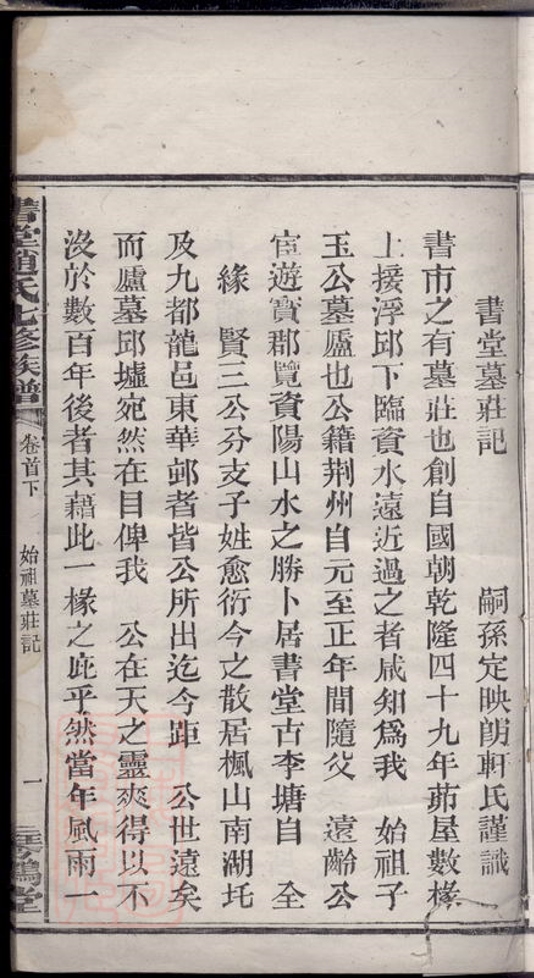 書堂墓莊記
嗣孫定映朗軒氏謹識
書市之有墓莊也創自國朝乾隆四十九年茆屋數椽
上援浮邱下臨資水遠近過之者咸知爲我 始祖子
玉公墓廬也公籍荆州自元至正年間隨父 遠齡公
宦遊寶郡覽資陽山水之勝卜居書堂古李塘自 全
緣 賢三公分支子姓愈衍今之散居楓山南湖圫
及九都龍邑東華邺者皆公所出迄今距 公世遠矣
而廬墓邱墟宛然在目俾我 公在天之靈爽得以不
沒於數百年後者其藉此一椽之庇乎然當年風雨一
書堂趙氏七修族譜
卷首下
始祖墓莊記
一
琴鶴堂